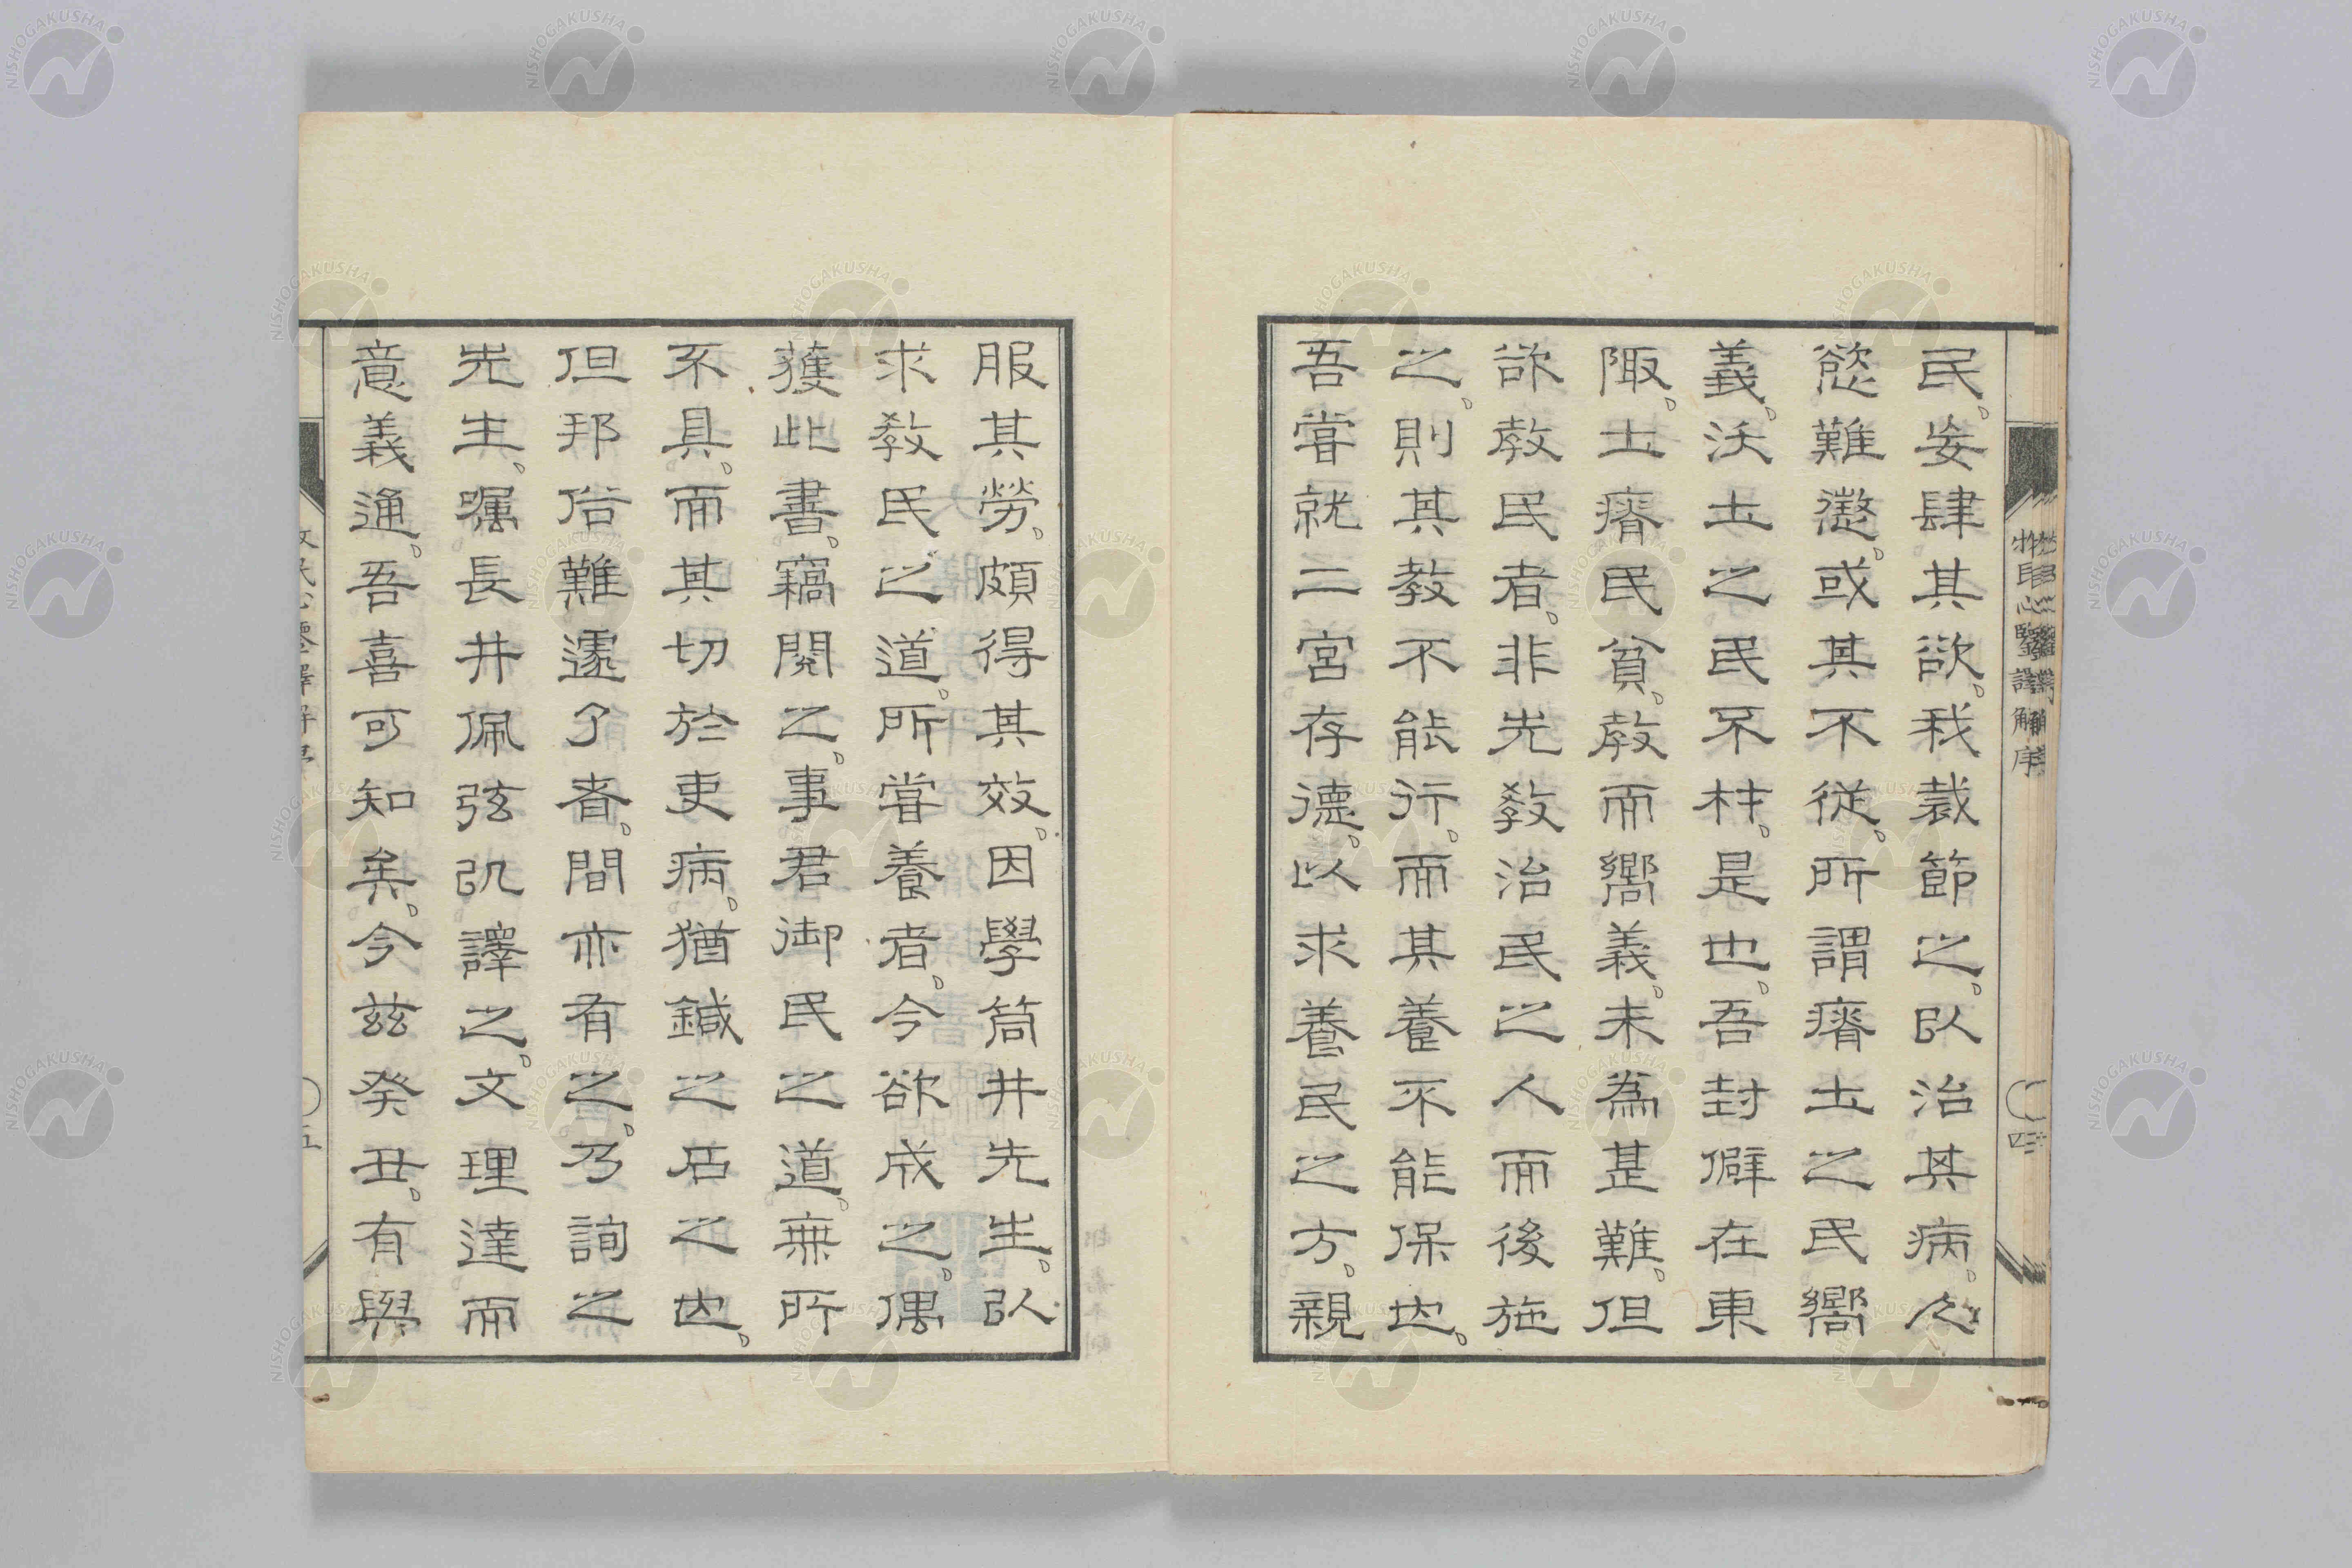 民。妄肆其欲。我裁節之。以治其病。人
慾難懲。或其不從。所謂瘠土之民嚮
義。沃土之民不材。是也。吾封僻在東
陬。土瘠民貧。敎而嚮義。未為甚難。但
欲敎民者。非先敎治民之人而後施
之。則其教不能行。而其養不能保也。
吾嘗就二宮存德。以求養民之方。親
服其勞。頗得其效。因學筒井先生。以
求敎民之道。所嘗養者。今欲成之。偶
獲此書。竊閱之。事君御民之道。無所
不具。而其切於吏病。猶鍼之石之也。
但邦俗難遽了者。間亦有之。乃詢之
先生。囑長井佩弦訊譯之。文理達而
意義通。吾喜可知矣。今茲癸丑。有與
牧民心鑒譯解序
四
五
NISHOGAKUSHA